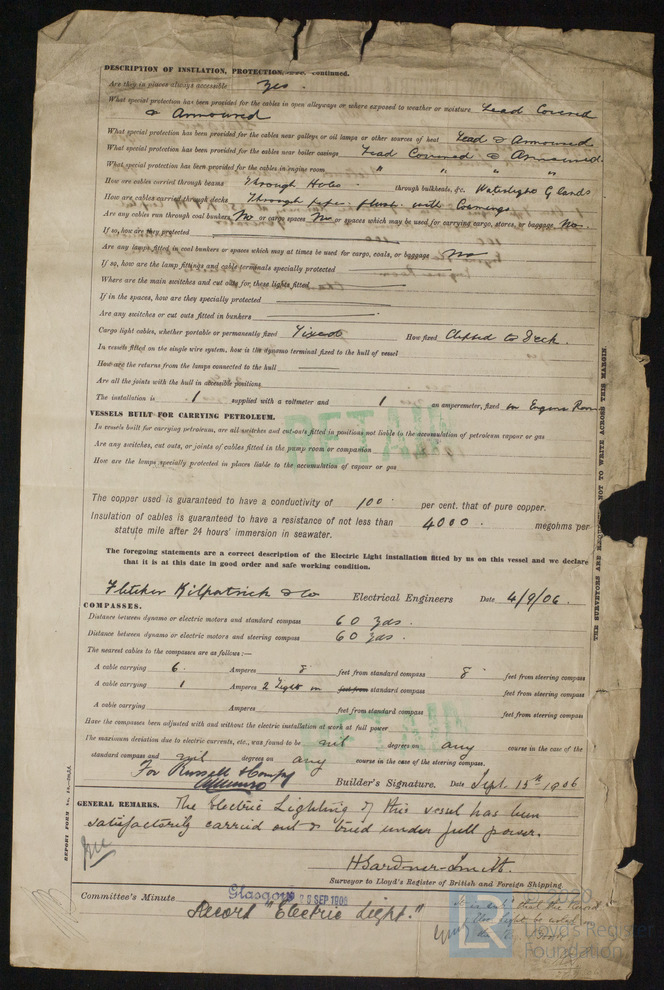 DESCRIPTION OF INSULATION, PROTECTION, continued.
Are they in places always accessible Yes.
What special protection has been provided for the cables in open alleyways or where exposed to weather or moisture Lead Covered
& Armoured
What special protection has been provided for the cables near galleys or oil lamps or other sources of heat Lead & Armoured
What special protection has been provided for the cables near boiler casings Lead Covered & Armoured.
What special protection has been provided for the cables in engine room " " " "
How are cables carried through beams Through Holes. through bulkheads, &c. Watertight Glands
How are cables carried through decks Through pipes flush with Coamings
Are any cables run through coal bunkers No or cargo spaces No or spaces which may be used for carrying cargo, stores, or baggage No.
If so, how are they protected
Are any lamps fitted in coal bunkers or spaces which may at times be used for cargo, coals, or baggage No
If so, how are the lamp fittings and cable terminals specially protected
Where are the main switches and cut outs for these lights fitted
If in the spaces, how are they specially protected
Are any switches or cut outs fitted in bunkers
Cargo light cables, whether portable or permanently fixed Fixed How fixed Clipped to Deck.
In vessels fitted on the single wire system, how is the dynamo terminal fixed to the hull of vessel
How are the returns from the lamps connected to the hull
Are all the joints with the hull in accessible positions
The installation is 1 supplied with a voltmeter and 1 an amperemeter, fixed in Engine Room
VESSELS BUILT FOR CARRYING PETROLEUM.
In vessels built for carrying petroleum, are all switches and cut-outs fitted in positions not liable to the accumulation of petroleum vapour or gas
Are any switches, cut outs, or joints of cables fitted in the pump room or companion
How are the lamps specially protected in places liable to the accumulation of vapour or gas
RETAIN
The copper used is guaranteed to have a conductivity of 100 per cent. that of pure copper.
Insulation of cables is guaranteed to have a resistance of not less than 4000. megohms per
statute mile after 24 hours' immersion in seawater.
The foregoing statements are a correct description of the Electric Light installation fitted by us on this vessel and we declare
that it is at this date in good order and safe working condition.
Fletcher Kilpatrick & Co Electrical Engineers Date 4/9/06.
COMPASSES.
Distance between dynamo or electric motors and standard compass 60 yds.
Distance between dynamo or electric motors and steering compass 60 yds.
The nearest cables to the compasses are as follows:—
A cable carrying 6. Amperes 8 feet from standard compass 8 feet from steering compass
A cable carrying 1 Amperes 2 Light in feet from standard compass feet from steering compass
A cable carrying Amperes feet from standard compass feet from steering compass
Have the compasses been adjusted with and without the electric installation at work at full power
The maximum deviation due to electric currents, etc., was found to be nil degrees on any course in the case of the
standard compass and nil degrees on any course in the case of the steering compass.
RETAIN
For Russell & Compy
Builder's Signature. Date Sept. 15th 1906
GENERAL REMARKS. The Electric Lighting of this vessel has been
satisfactorily carried out & tried under full power.
H Gardner-Smith.
Surveyor to Lloyd's Register of British and Foreign Shipping.
Committee's Minute Glasgow SEP 1906
Record "Electric Light."
THE SURVEYORS ARE REQUESTED NOT TO WRITE ACROSS THIS MARGIN.
REPORT FORM No.
LR
Lloyd's Register
Foundation